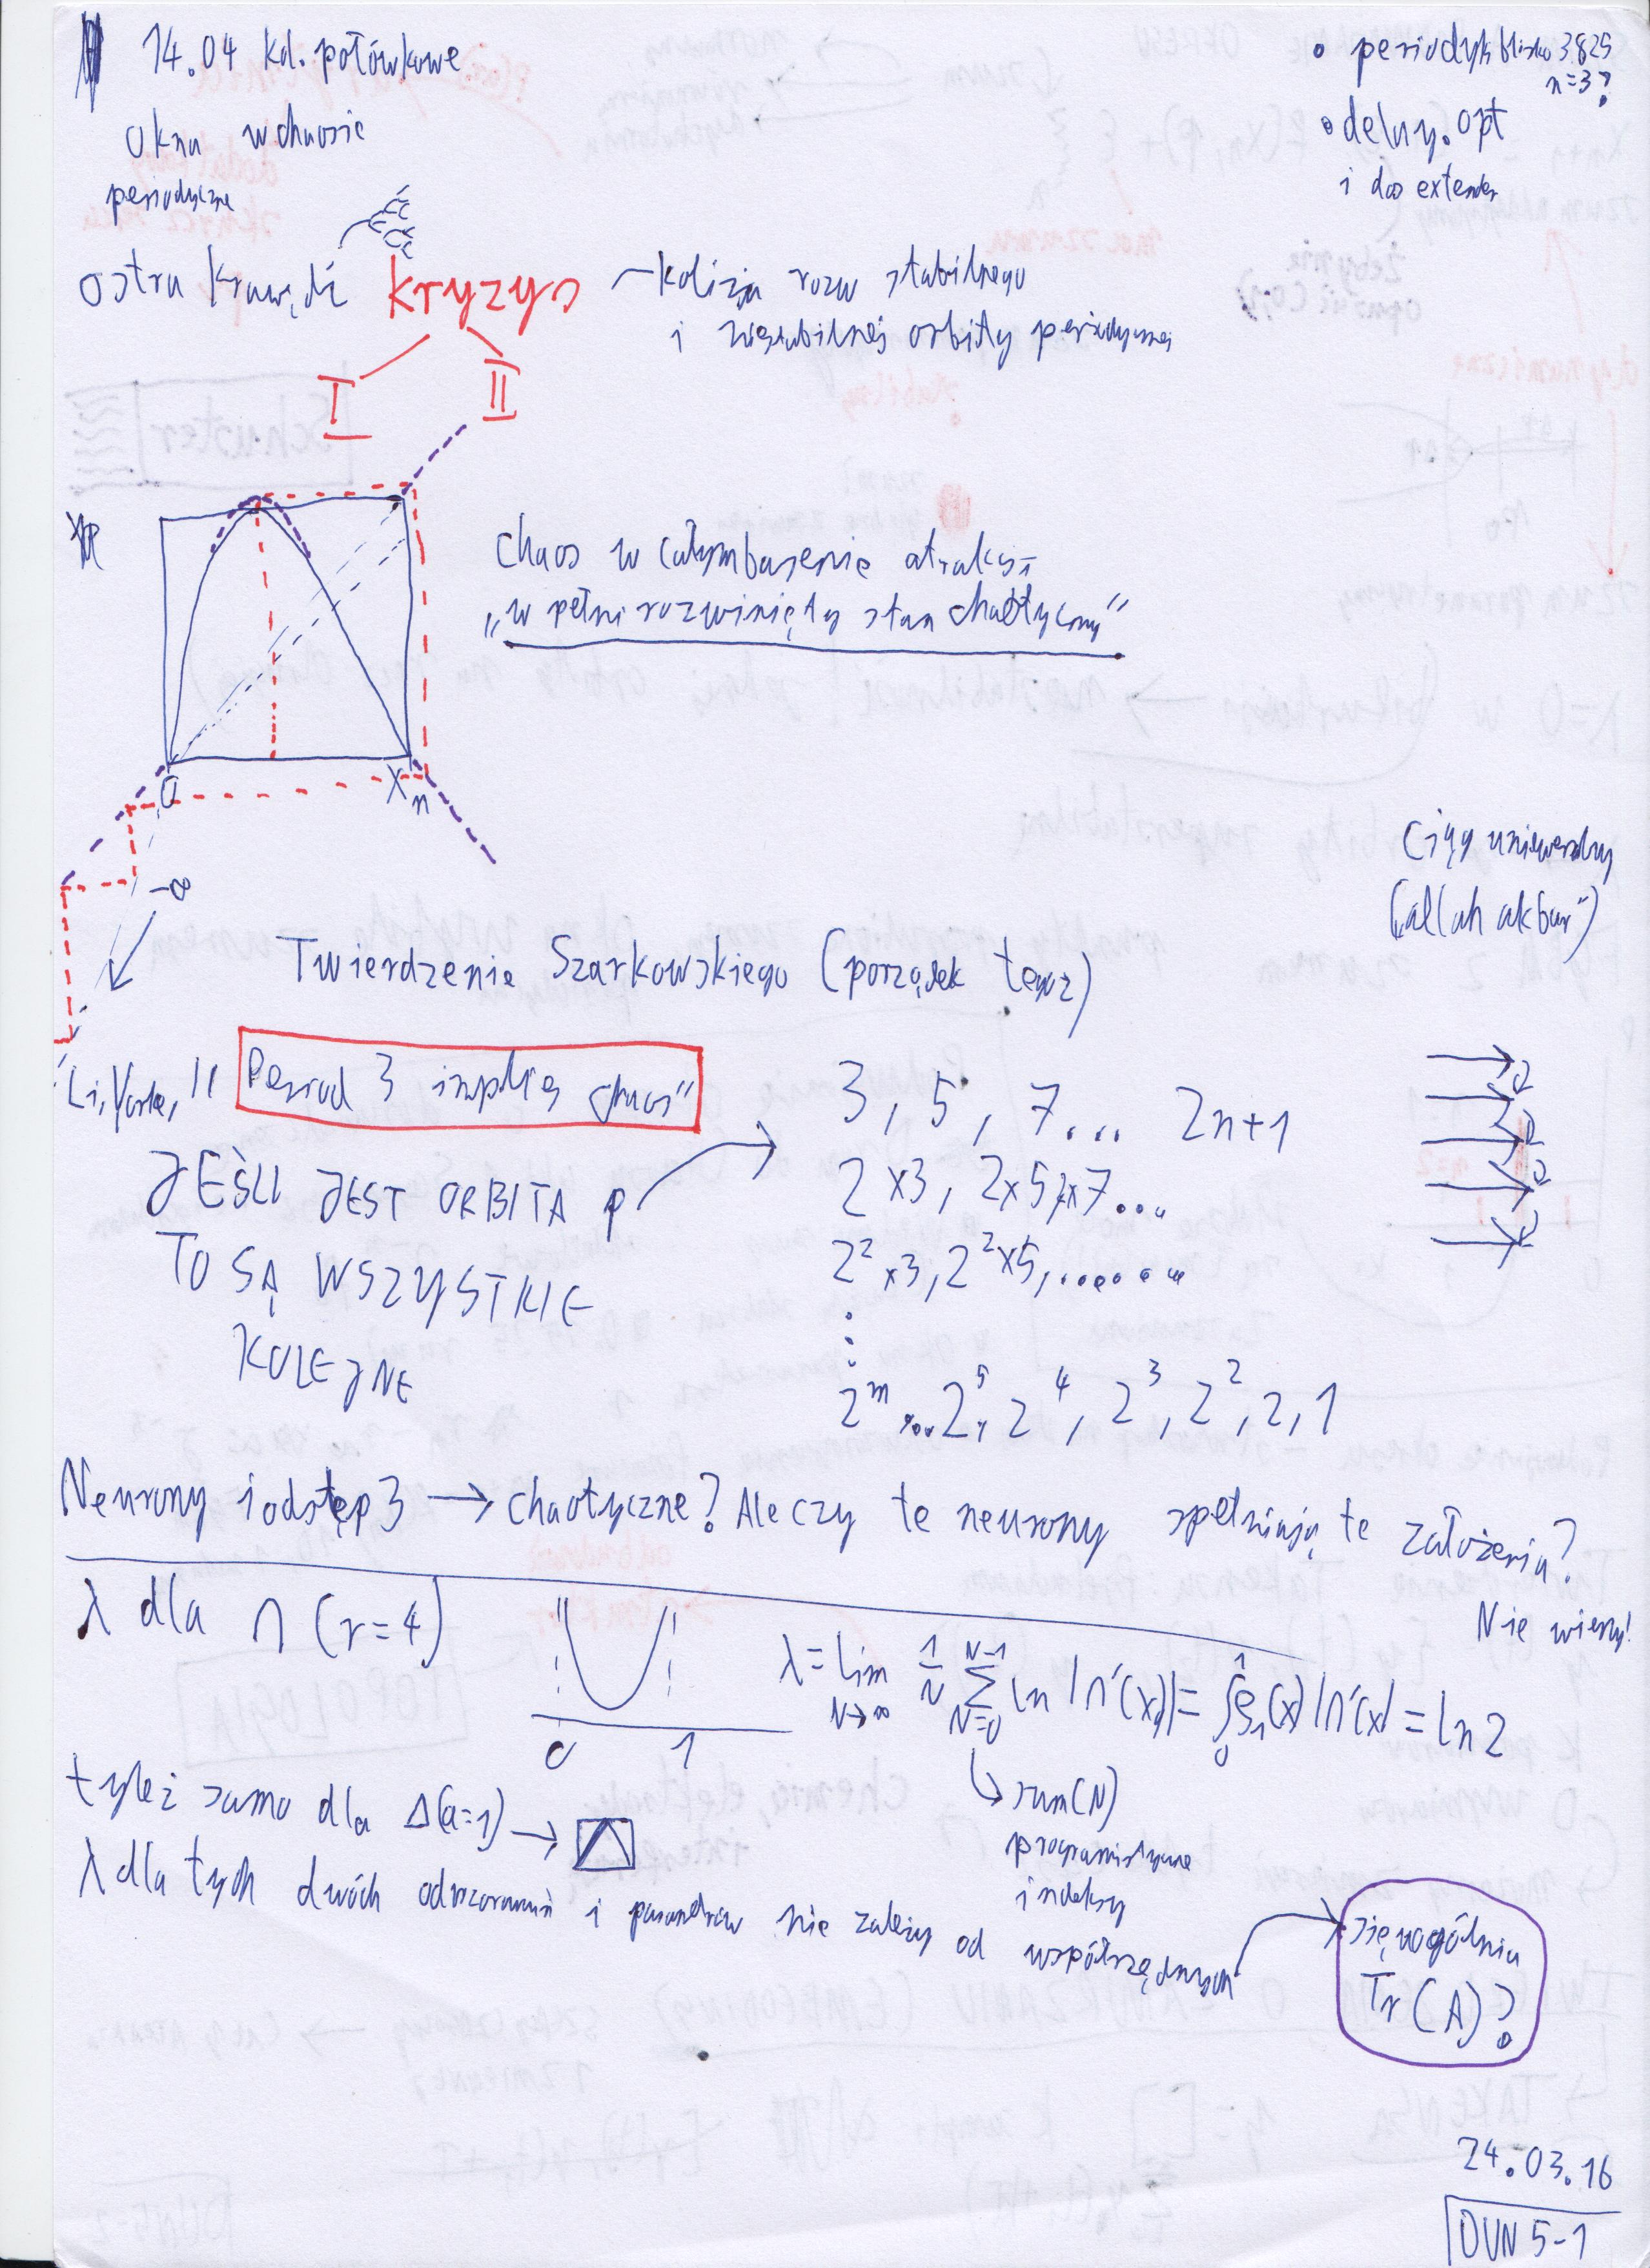 14.04 kol. połówkowe
okna w chaosie
periodyczne
• periodyk blisko 3.825
n=3?
• delay.opt
i do extender
ostra krawędź kryzys – kolizja rozw stabilnego
i niestabilnej orbity periodycznej
I II
chaos w całym basenie atrakcji
„w pełni rozwinięty stan chaotyczny”
0 Xn
-∞
Ciąg uniwersalny
(„allah akbar”)
Twierdzenie Szarkowskiego (porządek też)
Li, Yorke, "Period 3 implies chaos"
3, 5, 7... 2n+1
JEŚLI JEST ORBITA p
2x3, 2x5, 2x7...
TO SĄ WSZYSTKIE
2²x3, 2²x5, .......
KOLEJNE
2ᵐ ... 2⁵, 2⁴, 2³, 2², 2, 1
Neurony i odstęp 3 → chaotyczne? Ale czy te neurony spełniają te założenia?
Nie wiemy!
λ dla ∩ (r=4)
0 1
λ = lim N→∞ 1/N Σ N=0 N-1 ln |∩'(x)| = ∫₀¹ ρ₁(x) |∩'(x)| = ln 2
↳ sum(N)
programistyczne
indeksy
tyleż samo dla Δ(a=1) →
λ dla tych dwóch odwzorowań i parametrów nie zależy od współrzędnych
się uogólnia
Tr(A)?
24.03.16
DUN 5-1